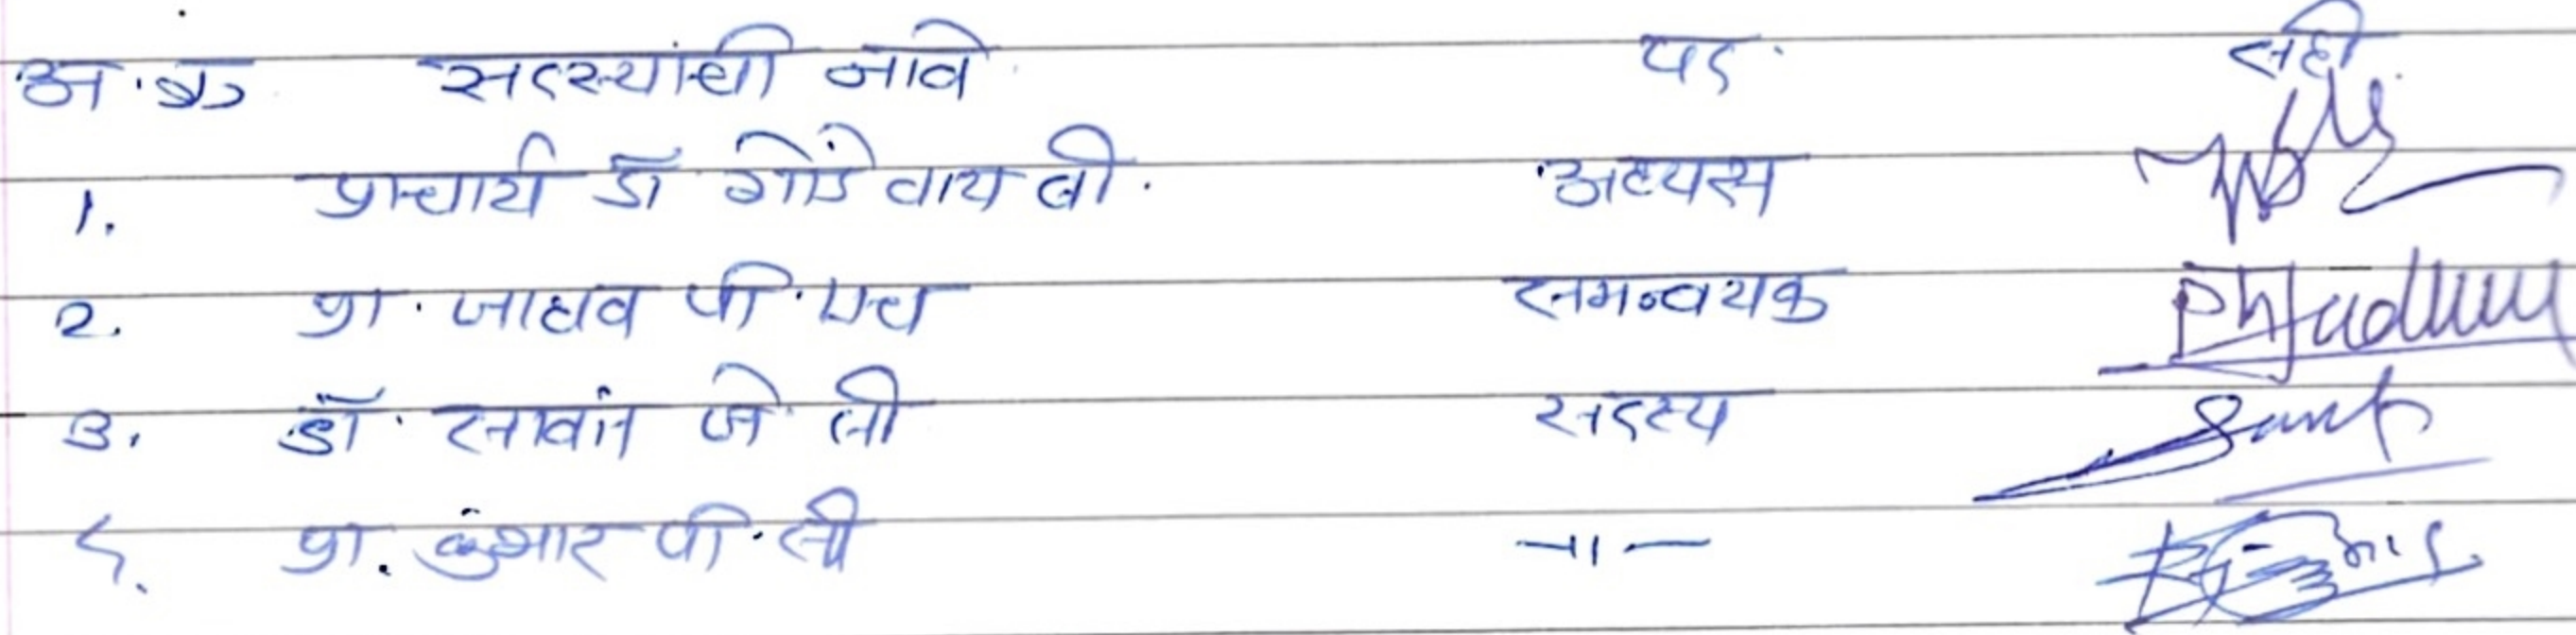 अ.क्र सदस्यांची नावे पद सही
1. प्राचार्य डॉ गोंडे वाय बी. अध्यक्ष
2. प्रा. जाधव पी.एच समन्वयक PHJadhav
3. डॉ. सावंत जे सी सदस्य Sawt
४. प्रा. कुंभार पी.सी —॥—